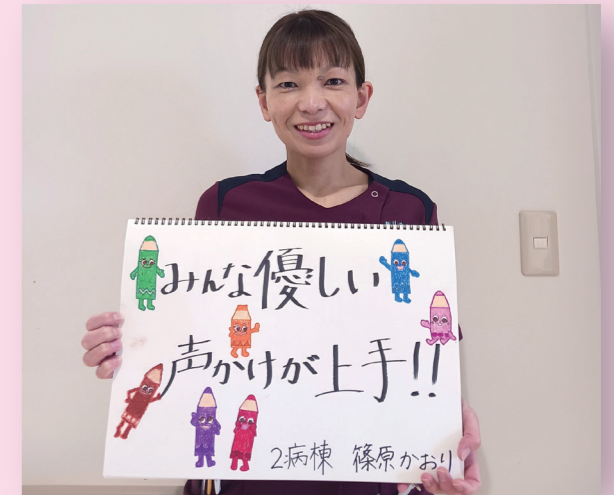 みんな優しい
声かけが上手!!
2病棟 篠原かおり